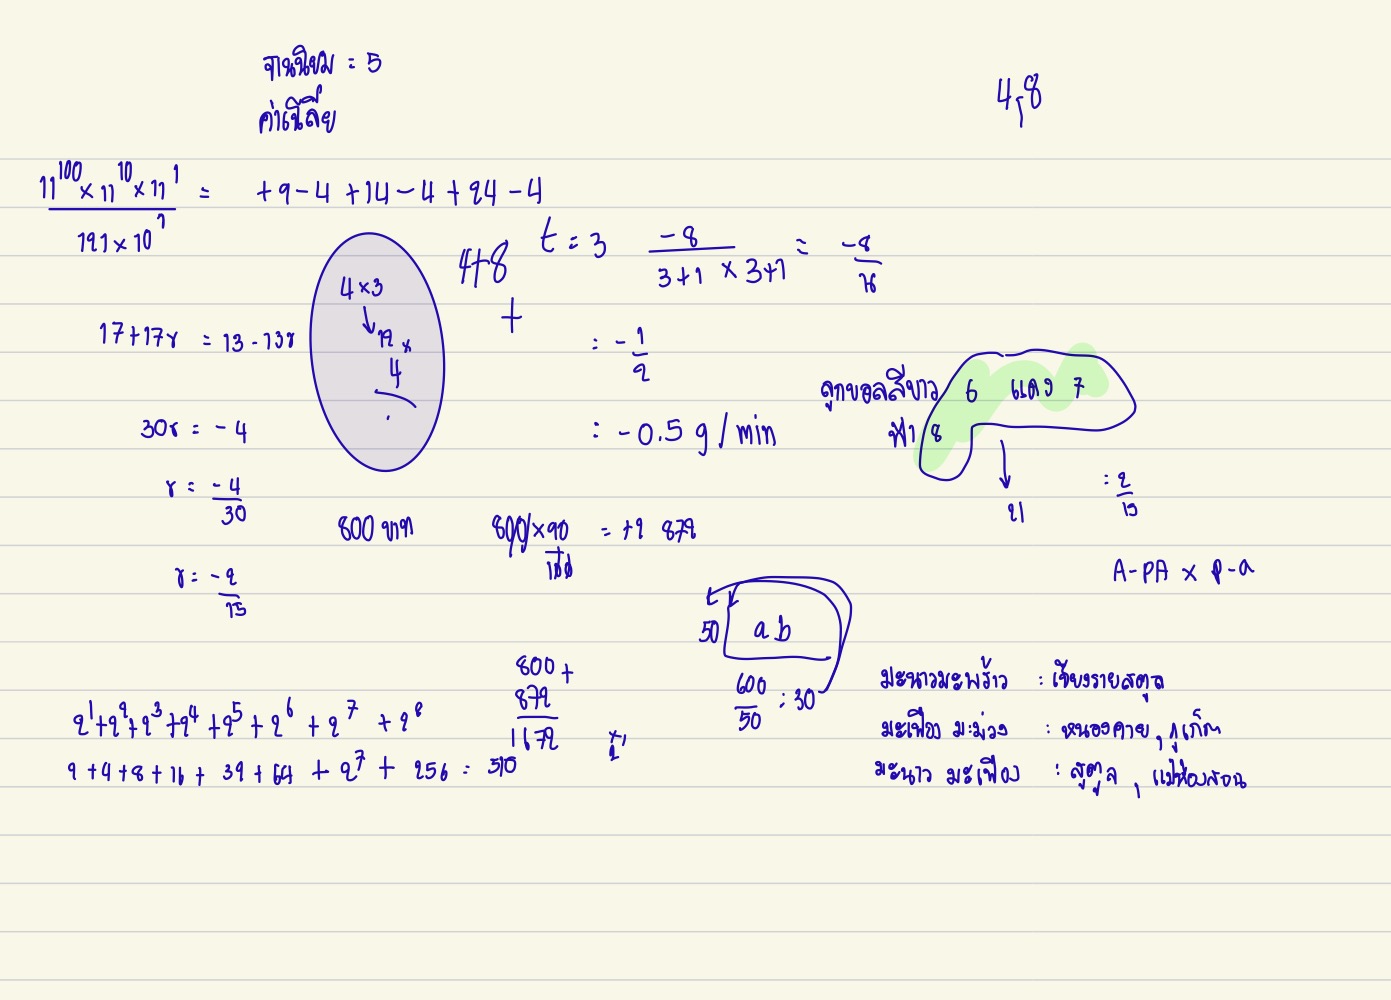 ฐานนิยม = 5
ค่าเฉลี่ย
4,8
11^100 × 11^10 × 11^1 = +9-4 +14-4 +24-4
121 × 10^7
4+8
+
t = 3 -8 / 3+1 × 3+1 = -8 /
= -1/2
= -0.5 g/min
4 × 3
12 ×
4
17+17r = 13-13r
30r = -4
r = -4/30
r = -2/15
ลูกบอลสีขาว 6 แดง 7
ฟ้า 8
21
= 2/15
800 บาท
800 × 90 / 100 = +2 872
A-PA × P-a
50 ab
600/50 = 30
800 +
872
1672
2^1+2^2+2^3+2^4+2^5+2^6+2^7+2^8
2+4+8+16+32+64+2^7+256 = 510
มะนาวมะพร้าว : เชียงรายสตูล
มะเฟือง มะม่วง : หนองคาย, ภูเก็ต
มะนาว มะเฟือง : สตูล, แม่ฮ่องสอน